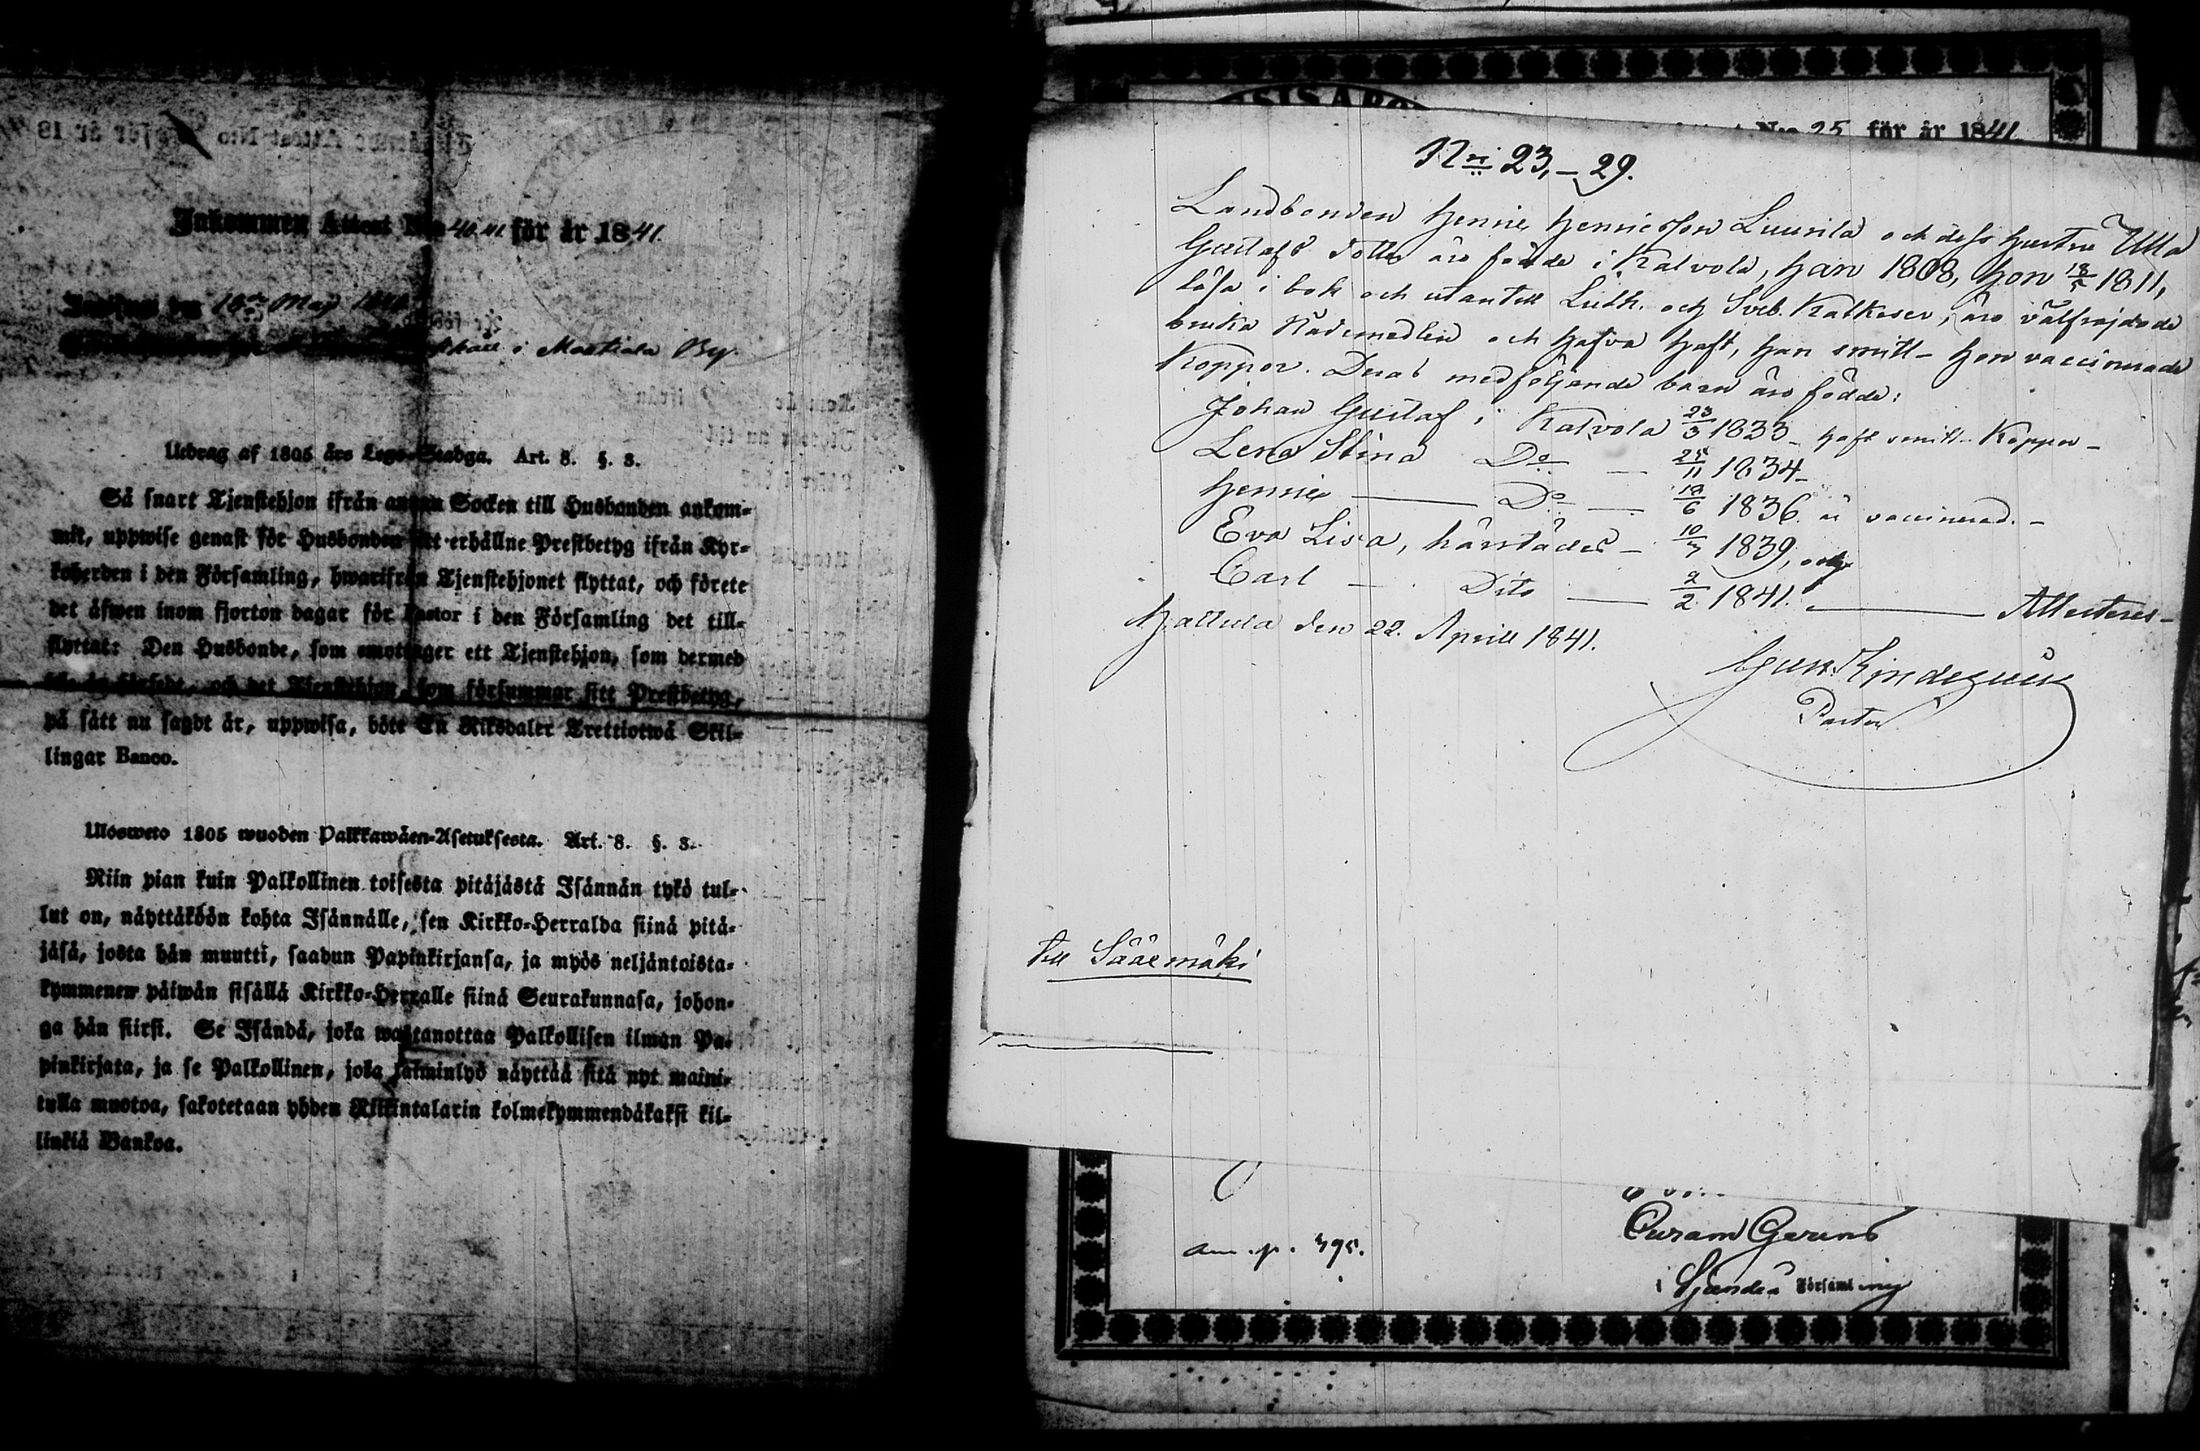 Inkommen Attest N:o 40.41. för år 1841.
18de May 1841
i Maatiala By.
Utdrag af 1805 års Lego-Stadga. Art. 8. §. 3.
Så snart Tjenstehjon ifrån annan Socken till Husbonden ankom-
mit, uppwise genast för Husbonden sitt erhållne Prestbetyg ifrån Kyr-
koherden i den Församling, hwarifrån Tjenstehjonet flyttat, och förete
det äfwen inom fjorton dagar för Pastor i den Församling det till-
flyttat: Den Husbonde, som emottager ett Tjenstehjon, som dermed
och det Tjenstehjon, som försummar sitt Prestbetyg,
på sätt nu sagdt är, uppwisa, böte En Riksdaler Trettiotwå Skil-
lingar Banco.
Ulosweto 1805 wuoden Palkkawäen-Asetuksesta. Art. 8. §. 3.
Niin pian kuin Palkollinen toisesta pitäjästä Isännän tykö tul-
lut on, näyttäköön kohta Isännälle, sen Kirkko-Herralda siinä pitä-
jäsä, josta hän muutti, saadun Papinkirjansa, ja myös neljäntoista-
kymmenen päiwän sisällä Kirkko-Herralle siinä Seurakunnasa, johon-
ga hän siirsi. Se Isändä, joka wastanottaa Palkollisen ilman Pa-
pinkirjata, ja se Palkollinen, joka laiminlyö näyttää sitä nyt maini-
tulla muotoa, sakotetaan yhden Riikintalarin kolmekymmendäkaksi kil-
linkiä Bankoa.
N:o 25 för år 1841
Nri 23,-29.
Landbonden Henric Henricsson Liuvila och dess hustru Ulla
Gustafs dotter äro födde i Kalvola, han 1808, hon 18/5 1811,
läsa i bok och utantill Luth. och Sveb. Katkeser, äro välfrejdade
bruka Nådemedlen och hafva haft, han smitt- hon vaccinerade
Koppor. Deras medföljande barn äro födde:
Johan Gustaf i Kalvola 23/3 1833 - haft smitt- Koppor -
Lena Stina Do — 24/11 1834 -
Henric — Do — 19/6 1836. är vaccinerad. -
Eva Lisa, härstädes - 10/7 1839, och
Carl — Dito — 2/2 1841. — Attesteras -
Hattula den 22. Aprill 1841.
Pastor
till Sääxmäki
am. p. 395.
Curam Gerens
i Församling